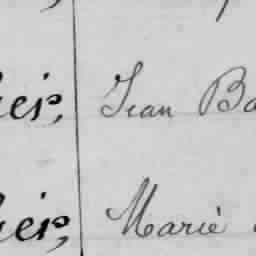 ier, Jean Ba
ier, Marie